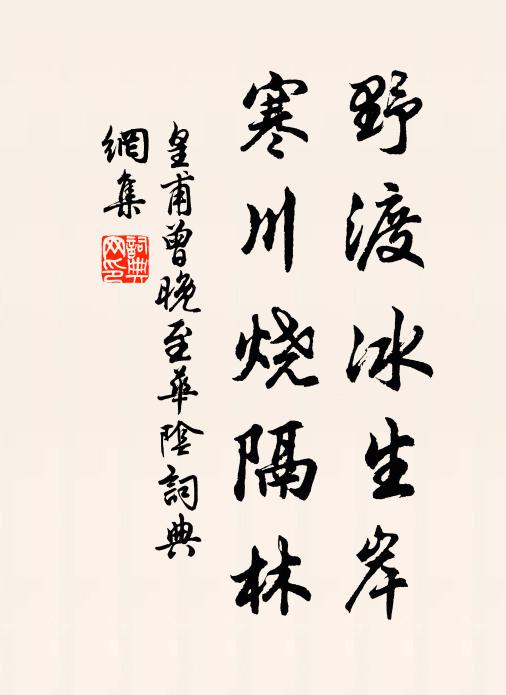 野渡冰生岸
寒川烧隔林
皇甫曾晚至華陰詞典
網集
詞典
网印